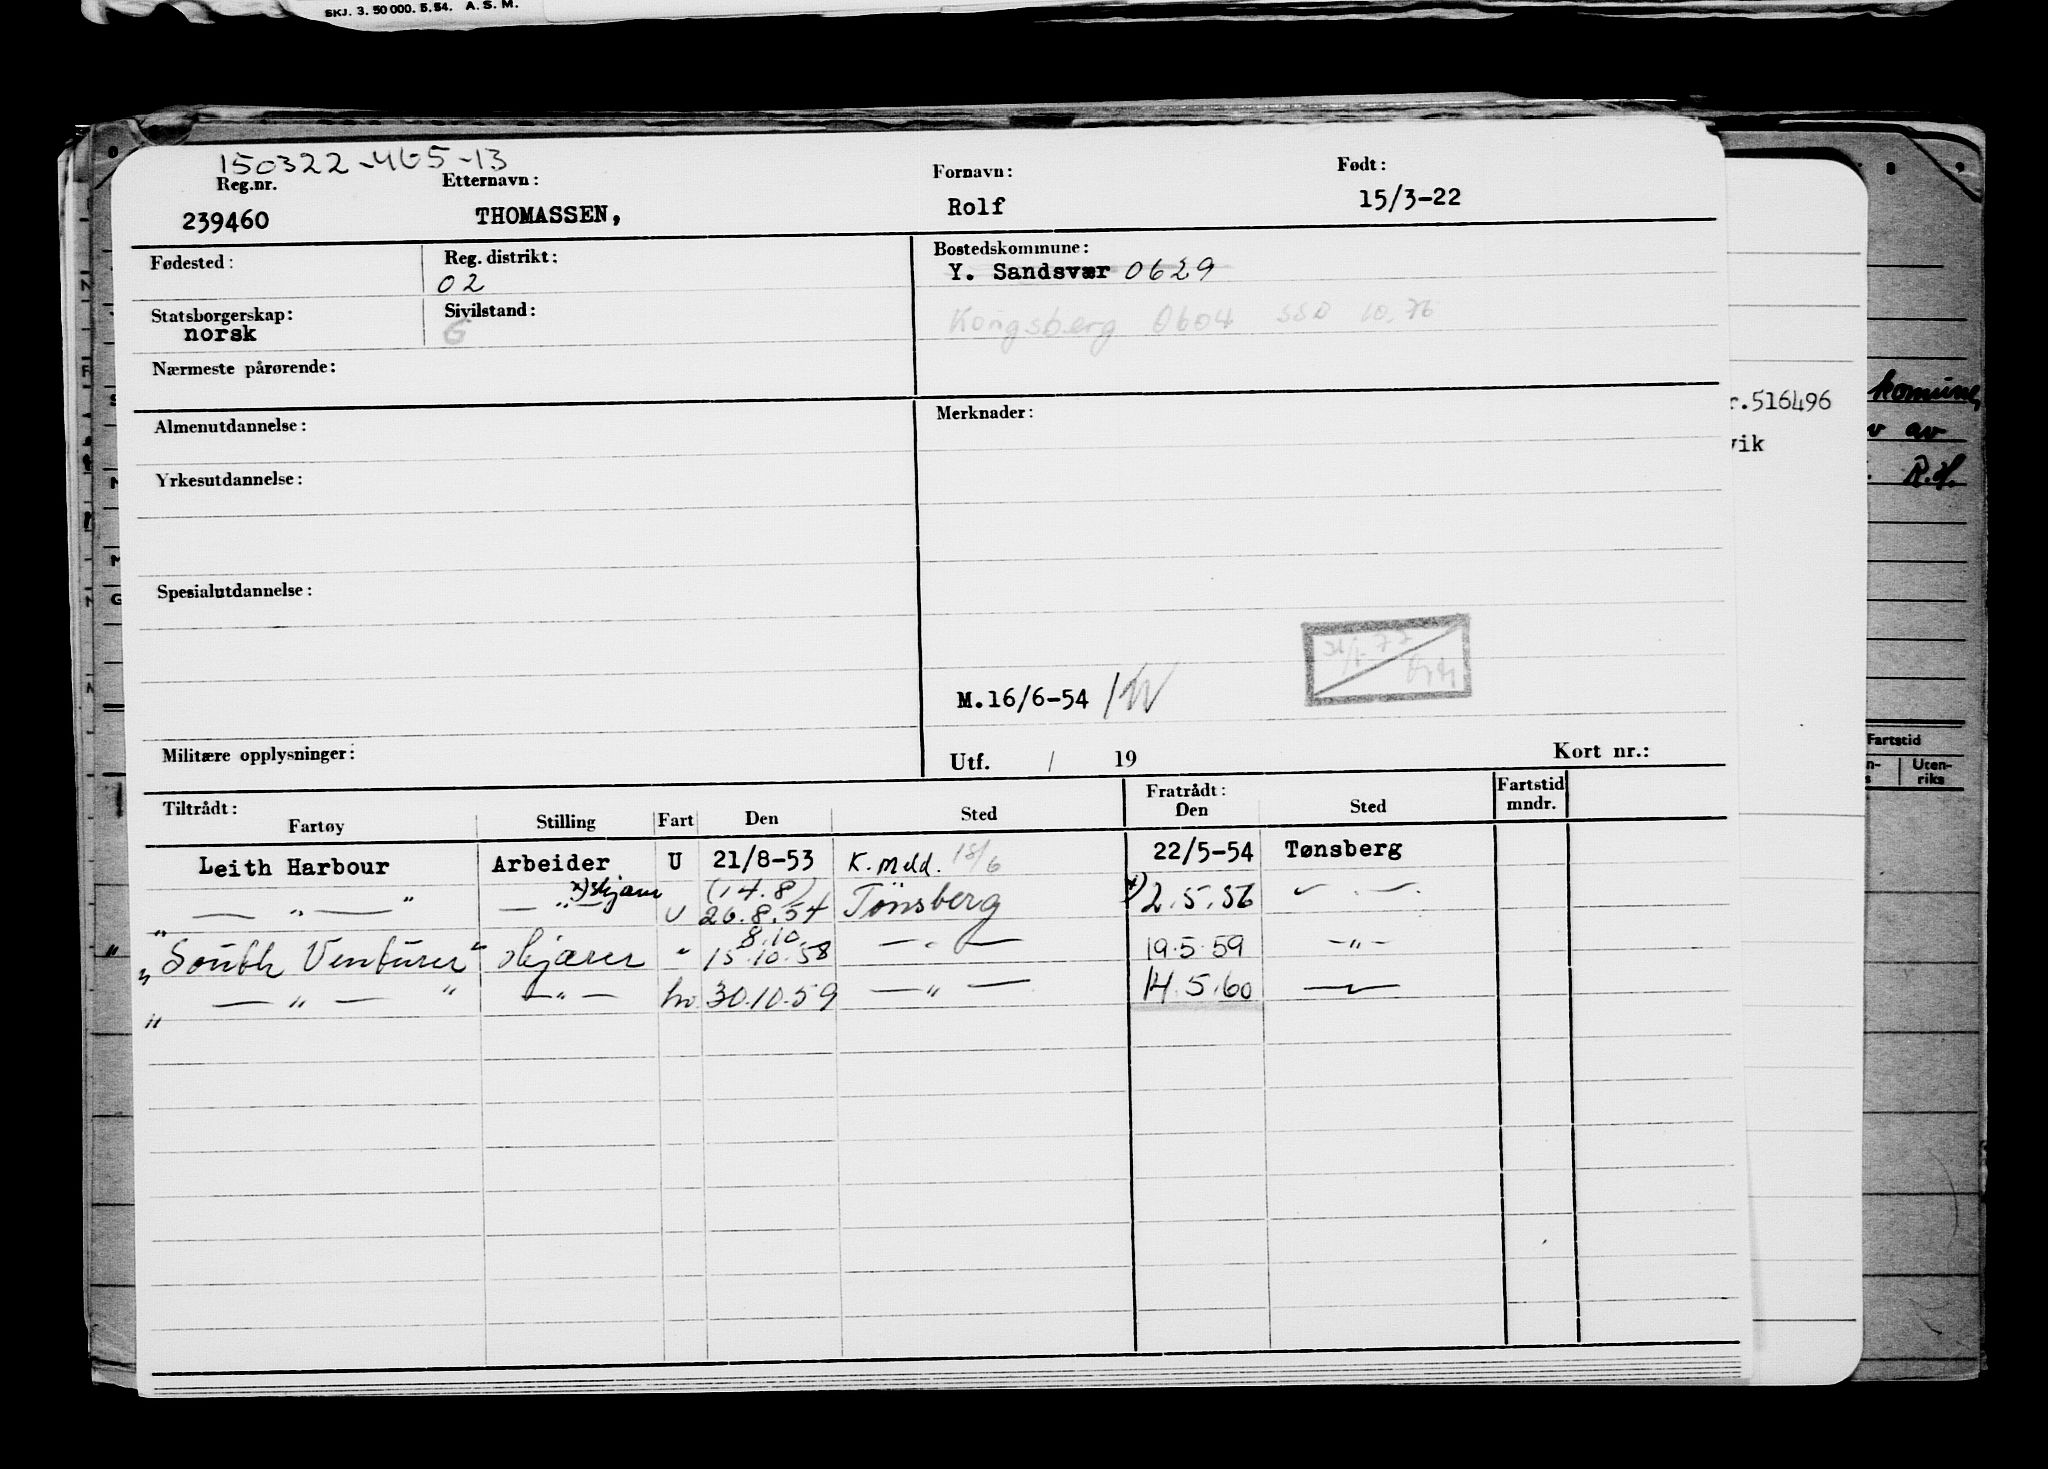 SKJ. 3. 50 000. 5. 54. A. S. M.
150322-465-13
Reg.nr. Etternavn: Fornavn: Født:
239460 THOMASSEN, Rolf 15/3-22
Fødested: Reg. distrikt: Bostedskommune:
02 Y. Sandsvær 0629
Statsborgerskap: Sivilstand:
norsk G Kongsberg 0604 SSD 10.76
Nærmeste pårørende:
Almenutdannelse: Merknader:
Yrkesutdannelse:
Spesialutdannelse:
M.16/6-54
Militære opplysninger: Utf. / 19 Kort nr.:
Tiltrådt: Fratrådt: Fartstid
Fartøy Stilling Fart Den Sted Den Sted mndr.
Leith Harbour Arbeider U 21/8-53 K. Meld. 18/6 22/5-54 Tønsberg
x) skjærer (14.8)
— " — " — " — U 26.8.54 Tønsberg x) 2.5.56 — " —
8.10.
"South Venturer" skjærer " 15.10.58 — " — 19.5.59 — " —
" — " — " — " — hv 30.10.59 — " — 14.5.60 — " —
"
r.516496
vik
komune,
v av
R.H.
Fartstid
n-
s
Uten-
riks